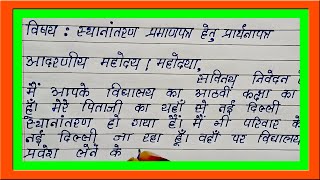 विषय : स्थानांतरण प्रमाणपत्र हेतु प्रार्थनापत्र
आदरणीय महोदय / महोदया,
सविनय निवेदन है
मैं आपके विद्यालय का आठवीं कक्षा का
हूँ। मेरे पिताजी का यहाँ से नई दिल्ली
स्थानांतरण हो गया है। मैं भी परिवार के
नई दिल्ली जा रहा हूँ। वहाँ पर विद्यालय
प्रवेश लेने के